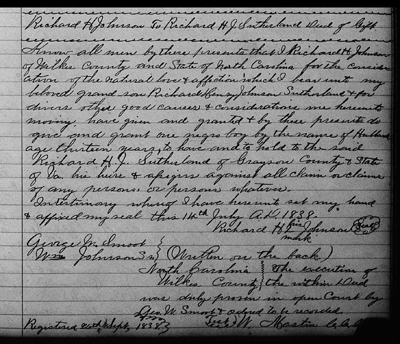 Richard H Johnson To Richard H. J. Sutherland Deed of Gift
Know all men by these presents that I Richard H. Johnson
of Wilkes County and State of North Carolina for the consider
ation of the natural love & affection which I bear unto my
beloved grand son Richard Henry Johnson Sutherland & for
divers other good causes & considerations me hereunto
moving, have given and granted & by these presents do
give and grant one negro boy by the name of Hubbard
age thirteen years, to have and to hold to the said
Richard H. J. Sutherland of Grayson County & State
of Va. his heirs & assigns against all claim or claims
of any person or persons whatever.
In testimony whereof I have hereunto set my hand
& affixed my seal this 14th July A.D. 1838.
Richard H his Johnson Seal
mark
George W. Smoot
Wm Johnson (Written on the back)
North Carolina The execution of
Wilkes County the within Deed
was duly proven in open Court by
Geo. W. Smoot & ordered to be recorded.
Registered Sept 1838 Test W. Mastin